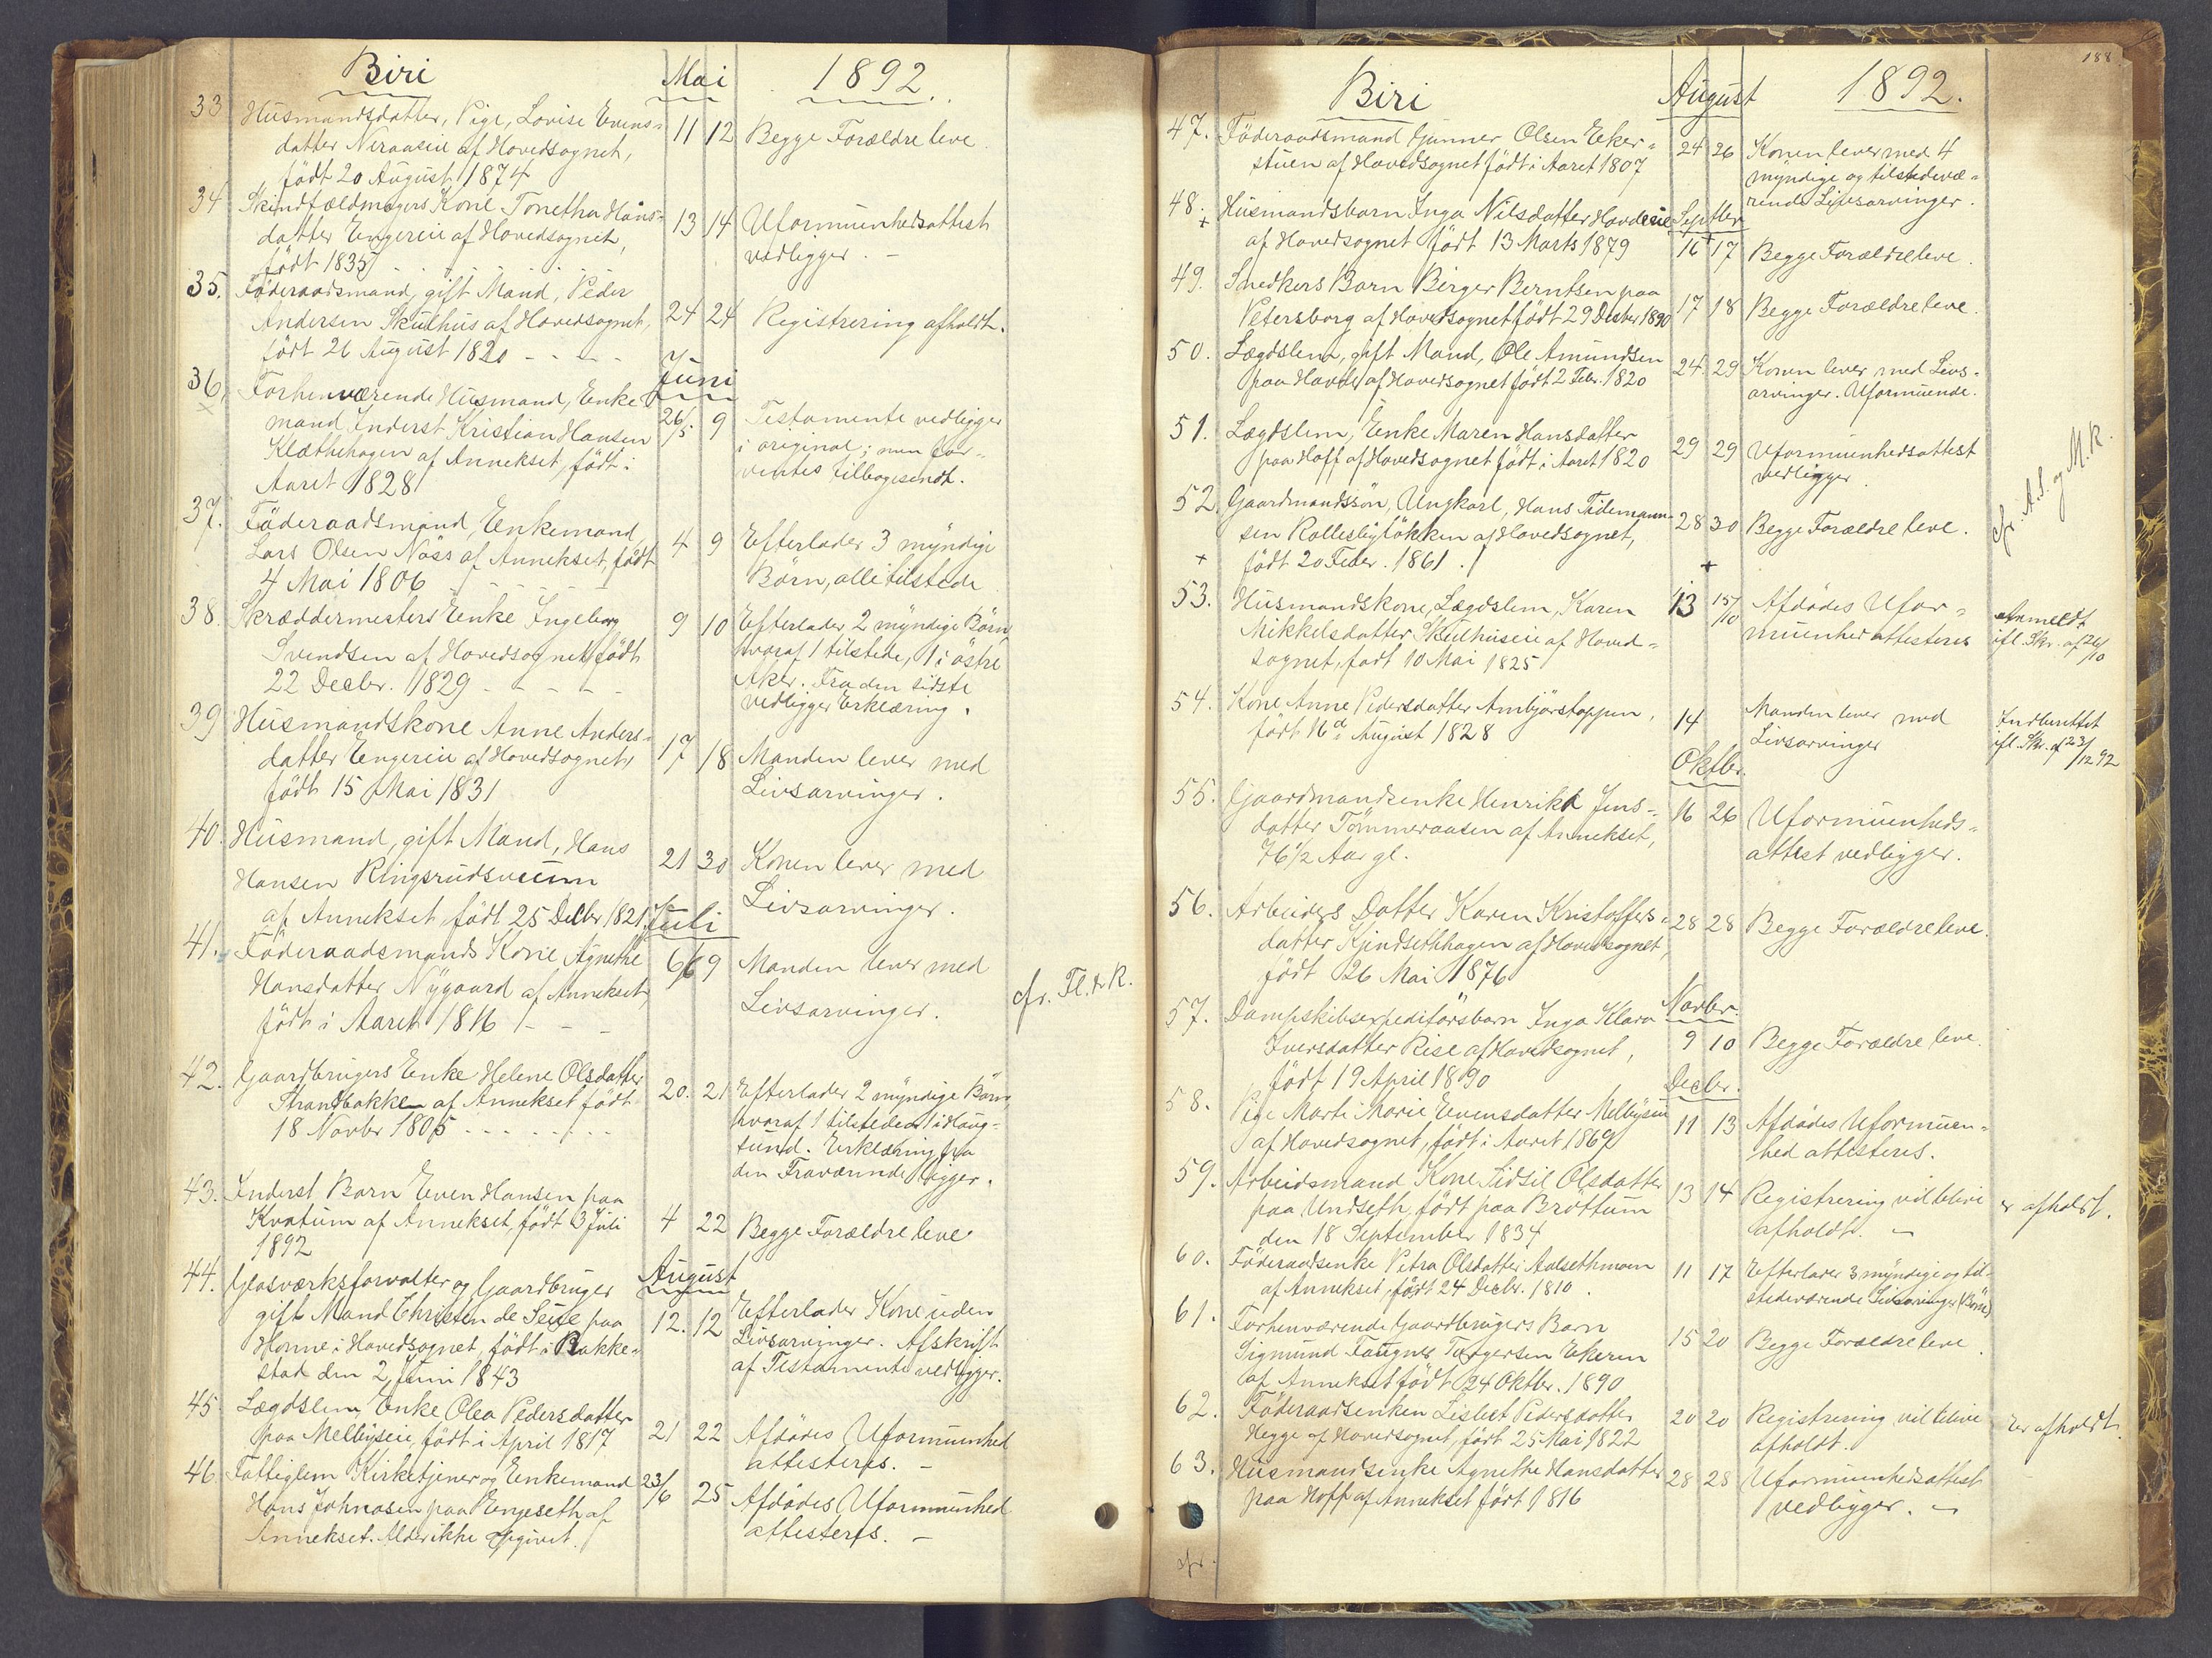 Biri
Mai
1892.
33 Husmandsdatter, Pige, Lovise Evens-
datter Neraaseie af Hovedsognet,
født 20 August 1874
11 12 Begge Forældre leve
34 Skindfældmagers Kone Tonetha Hans-
datter Engereie af Hovedsognet,
født 1835
13 14 Uformuenhedsattest
vedligger. -
35. Föderaadsmand, gift Mand, Peder
Andersen Skulhus af Hovedsognet,
født 26 August 1820 - - - -
24 24 Registrering afholdt.
Juni
36. Forhenværende Husmand, Enke-
mand Inderst Kristian Hansen
Klæthehagen af Annekset, født i
Aaret 1828
26/5 9 Testamente vedligger
i original; men for-
ventes tilbagesendt.
37. Föderaadsmand, Enkemand,
Lars Olsen Næss af Annekset, født
4 Mai 1806
4 9 Efterlader 3 myndige
Børn, alle tilstede
38. Skræddermesters Enke Ingeborg
Svendsen af Hovedsognet, født
22 Decbr. 1829 - - - -
9 10 Efterlader 2 myndige Børn,
hvoraf 1 tilstede, 1 i østre
Aker. Fra den sidste
vedligger Erklæring.
39 Husmandskone Anne Anders-
datter Engereie af Hovedsognet,
født 15 Mai 1831
17 18 Manden lever med
Livsarvinger.
40. Husmand, gift Mand, Hans
Hansen Ringsrudsveum
af Annekset, født 25 Decbr 1821.
21 30 Konen lever med
Livsarvinger.
Juli
41. Föderaadsmands Kone Agnethe
Hansdatter Nygaard af Annekset,
født i Aaret 1816 - - -
6/6 9 Manden lever med
Livsarvinger.
cfr. Fl. & R.
42. Gaardbrugers Enke Helene Olsdatter
Strandbakken af Annekset født
18 Novbr 1805 - - - - - -
20. 21 Efterlader 2 myndige Børn,
hvoraf 1 tilstede 1 i Haug-
sund. Erklæring fra
den Fraværende ligger.
43. Inderst Barn Even Hansen paa
Kvatum af Annekset, født 3 Juli
1892
4 22 Begge Forældre leve
August
44. Glasværksforvalter og Gaardbruger
gift Mand Christen de Seue paa
Honne i Hovedsognet, født i Rakke-
stad den 2 Juni 1843
12. 12 Efterlader Kone uden
Livsarvinger. Afskrift
af Testamente vedligger.
45 Lægdslem, Enke Olea Pedersdatter
paa Melbyseie, født i April 1817
21 22 Afdødes Uformuenhed
attesteres. -
46. Fattiglem Kirketjener og Enkemand
Hans Johnasen paa Engeseth af
Annekset. Alder ikke opgivet.
23/6 25 Afdødes Uformuenhed
attesteres. -
188
Biri
August
1892.
47. Föderaadsmand Gunner Olsen Eker-
stuen af Hovedsognet født i Aaret 1807
24 26 Konen lever med 4
myndige og tilstedevæ-
rende Livsarvinger.
Septbr
48. Husmandsbarn Inga Nilsdatter Hovdeeie
+ af Hovedsognet født 13 Marts 1879
16 17 Begge Forældre leve.
49. Snedkers Barn Birger Berntsen paa
Petersborg af Hovedsognet født 29 Decbr 1890
17 18 Begge Forældre leve.
50. Lægdslem, gift Mand, Ole Amundsen
paa Hovde af Hovedsognet født 2 Febr. 1820
24. 29 Konen lever med Livs-
arvinger. Uformuende.
51. Lægdslem, Enke Maren Hansdatter
paa Hoff af Hovedsognet født i Aaret 1820
29 29 Uformuenhedsattest
vedligger.
52 Gaardmandssøn, Ungkarl, Hans Tidemann-
sen Rollesbyløkken af Hovedsognet,
+ født 20 Febr. 1861.
28 30 Begge Forældre leve.
cfr. A.S. og M.R.
+
53. Husmandskone, Lægdslem, Karen
Mikkelsdatter Skulhuseie af Hoved-
sognet, født 10 Mai 1825
13 15/10 Afdødes Ufor-
muenhed attesteres
Anmeldt
ifl. Skr. af 26/10
54. Kone Anne Pedersdatter Ambjørstoppen,
født 16de August 1828
14 Manden lever med
Livsarvinger
Indberettet
ifl. Skr. af 23/12 92
Oktbr.
55. Gaardmandsenke Henrika Jens-
datter Tømmeraasen af Annekset,
76 1/2 Aar gl.
16 26 Uformuenheds-
attest vedligger.
56. Arbeiders Datter Karen Kristoffers-
datter Kjindsethhagen af Hovedsognet,
født 26 Mai 1876
28 28 Begge Forældre leve.
Novbr.
57. Dampskibsexpeditørsbarn Inga Klara
Iversdatter Rise af Hovedsognet,
født 19 April 1890
9 10 Begge Forældre leve.
Decbr.
58. Pige Marte Marie Evensdatter Melbyseie
af Hovedsognet, født i Aaret 1869
11 13 Afdødes Uformuen-
hed attesteres.
59. Arbeidsmand Kone Sidsil Olsdatter
paa Undseth, født paa Brøttum
den 18 September 1834
13 14 Registrering vil blive
afholdt. -
er afholdt.
60. Föderaadsenke Petra Olsdatter Aalsethmoen
af Annekset, født 24 Decbr. 1810.
11 17 Efterlader 3 myndige og til-
stedeværende Livsarvinger (Børn)
61. Forhenværende Gaardbrugers Barn
Sigmund Faugner Torgersen Ekeren
af Annekset født 24 Oktbr. 1890
15 20 Begge Forældre leve.
62. Föderaadsenken Lisbet Pedersdatter
Hegge af Hovedsognet, født 25 Mai 1822
20 20 Registrering vil blive
afholdt.
Er afholdt.
63. Husmandsenke Agnethe Hansdatter
paa Hoff af Annekset født 1816
28 28 Uformuenhedsattest
vedligger. -
cfr.